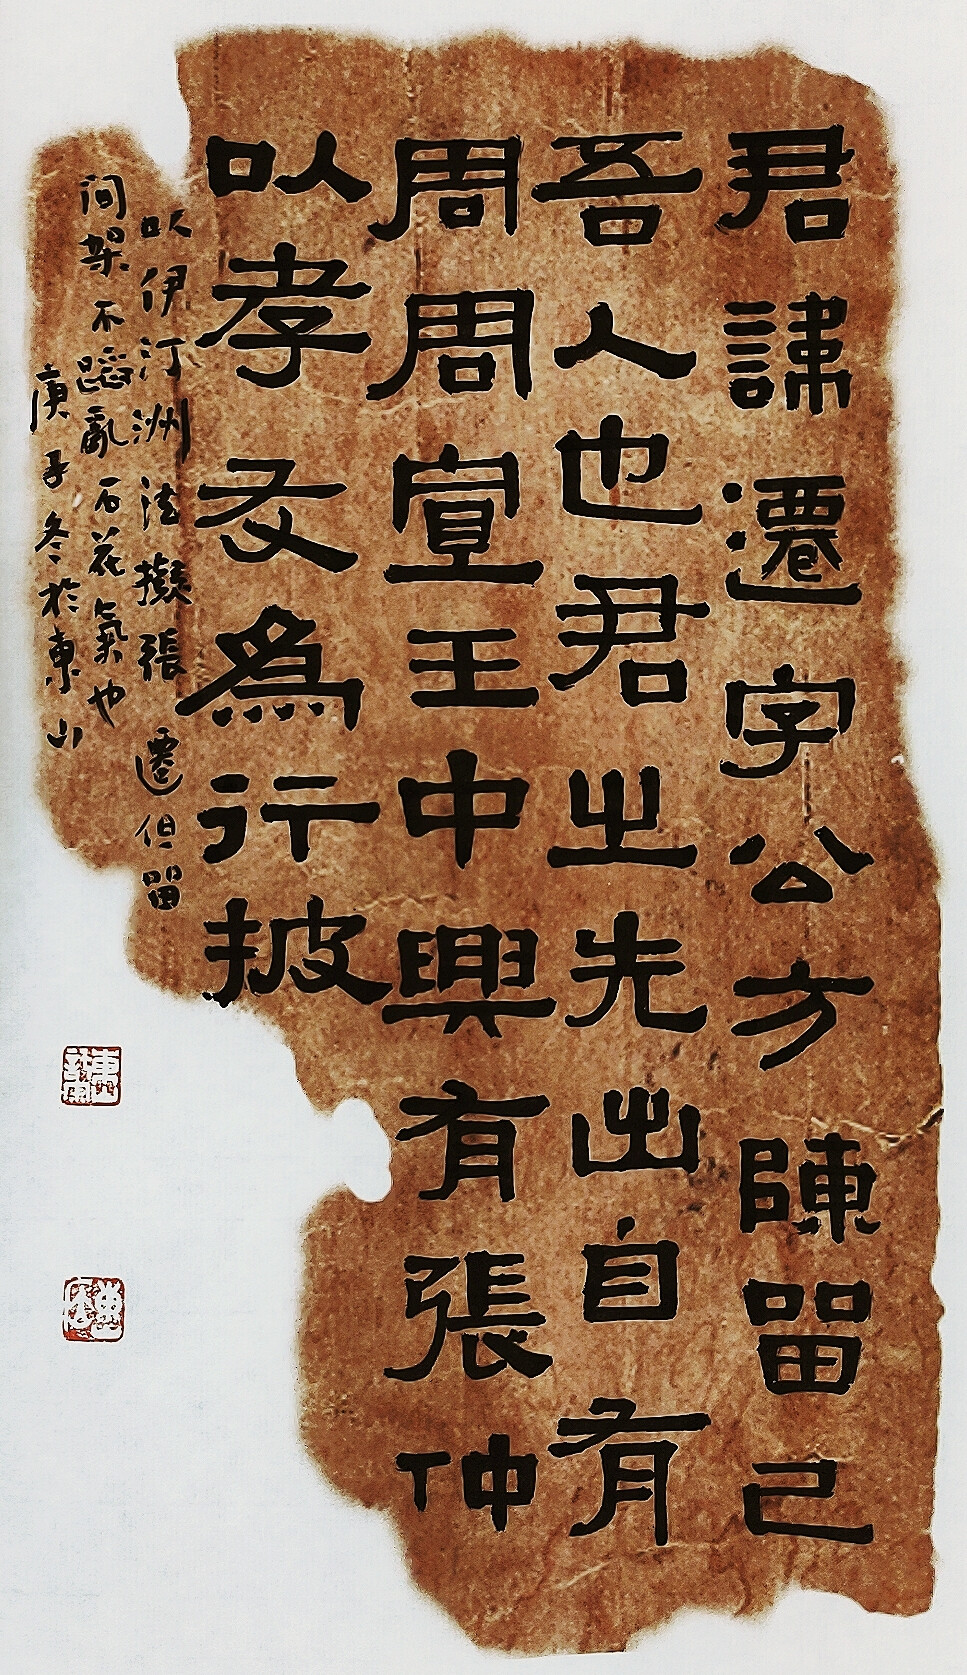 君諱遷字公方陳留己
吾人也君之先出自有
周周宣王中興有張仲
以孝友為行披
以伊汀洲法擬張遷但留
間架不蹈亂石花氣也
庚子冬於東山